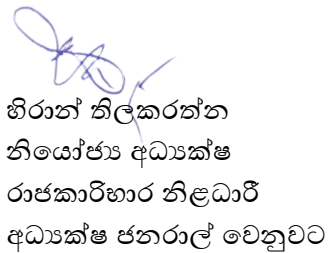 හිරාන් තිලකරත්න
නියෝජ්‍ය අධ්‍යක්ෂ
රාජකාරිභාර නිළධාරී
අධ්‍යක්ෂ ජනරාල් වෙනුවට